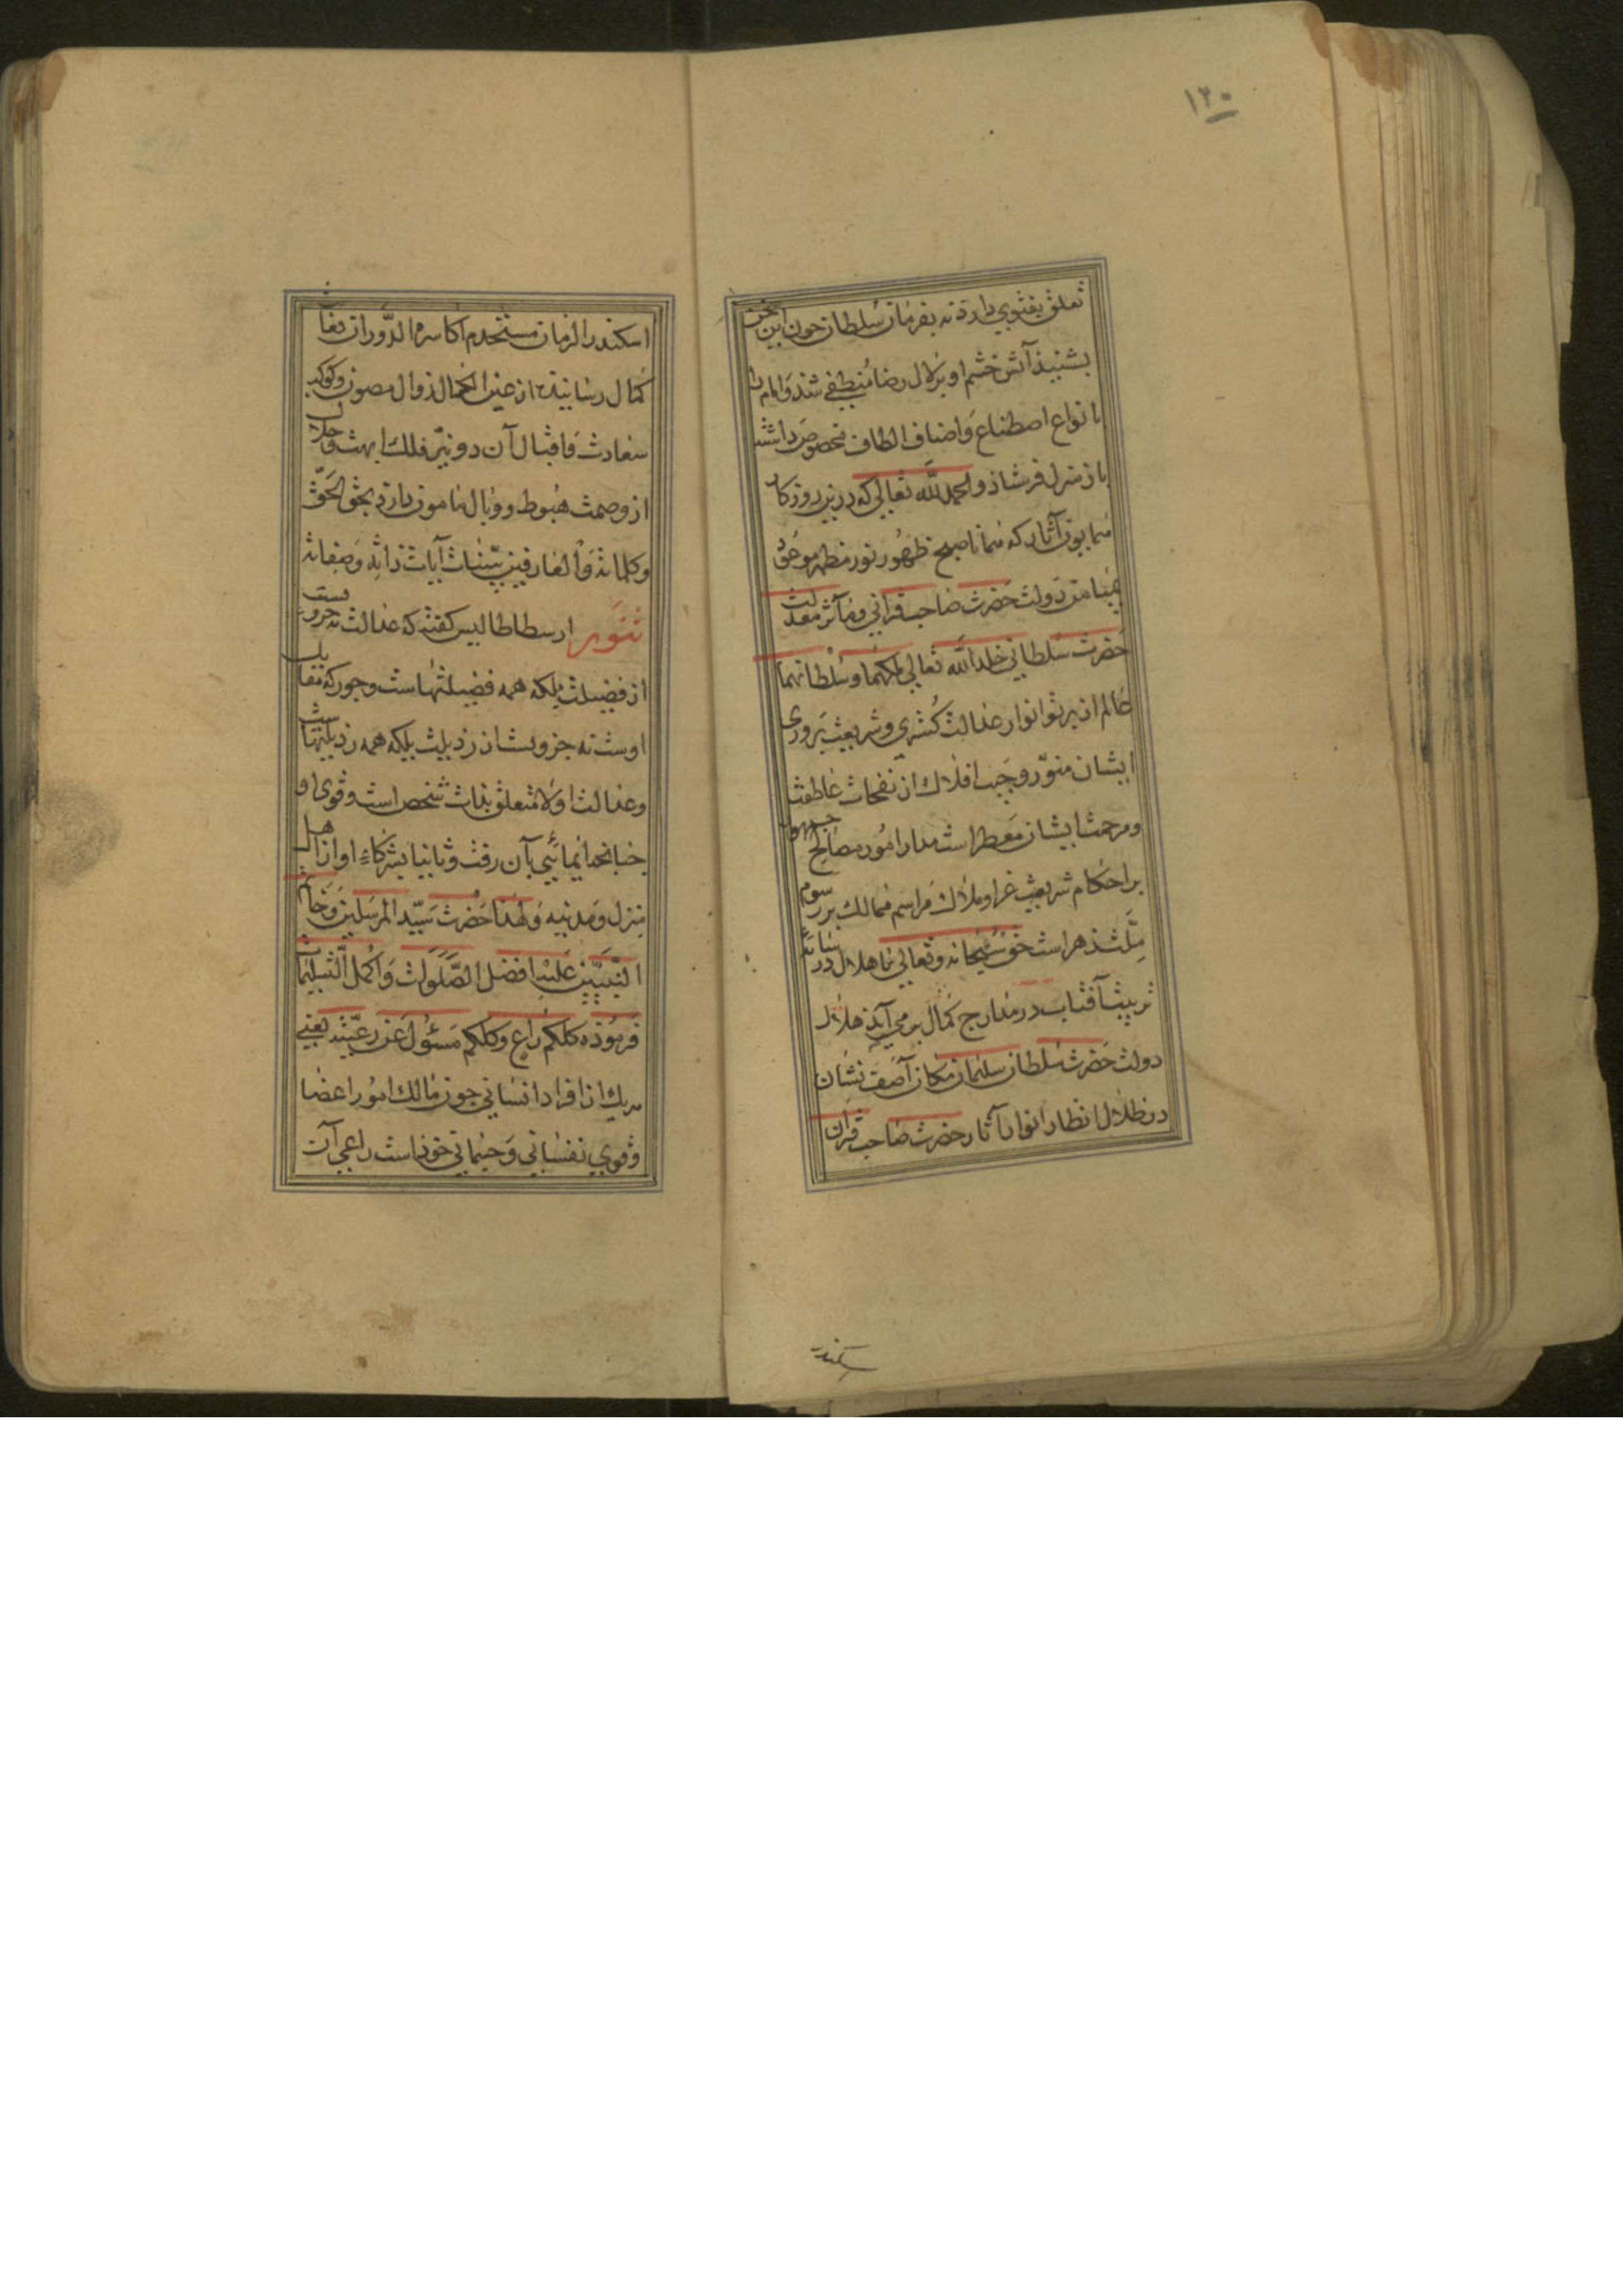 ۱۲۰
تعلق بفتوی دارد نه بفرمان سلطان چون این سخن
بشنید آتش خشم او بزلال رضا منطفی شد و امام را
بانواع اصطناع و اصناف الطاف مخصوص داشته
باز منزل فرستاذ والحمد لله تعالی که درین روزکار
همایون آثار که همانا صبح ظهور نور مظهر موعود
بمیامن دولت حضرت صاحب قرانی و مآثر معدلت
حضرت سلطانی خلد الله تعالی ملکهما و سلطانهما
عالم از پرتو انوار عدالت کستری و شریعت پروری
ایشان منور و جیب افلاک از نفحات عاطفت
و مرحمت ایشان معطر است مدار امور مصالح جمهور
بر احکام شریعت غرا و ملاک مراسم ممالک بر رسوم
ملت زهراست حق سبحانه و تعالی تا هلال در سایه
تربیت آفتاب در مدارج کمال بر می آید هلال
دولت حضرت سلطان سلیمان مکان آصف نشان
در ظلال انظار انوار آثار حضرت صاحب قران
سکندر
اسکندر الزمان مستخدم اکاسرة الدوران بغایت
کمال رسانیده از عین الکمال زوال مصون و کوکب
سعادت و اقبال آن دو نیر فلک ابهت و جلال
از وصمت هبوط و وبال مامون دارد بحق الحق
و کلماته و العارفین ببینات آیات ذاته و صفاته
تنویر ارسطاطالیس کفته که عدالت نه جزویست
از فضیلت بلکه همه فضیلتهاست و جور که مقابل
اوست نه جزویست از رذیلت بلکه همه رذیلتهاست
و عدالت اولا متعلق بذات شخص است و قوی او
چنانچه ایمائی بآن رفت و ثانیا بشرکاء او از اهل
منزل و مدینه و لهذا حضرت سید المرسلین و خاتم
النبیین علیه افضل الصلوات و اکمل التسلیمات
فرموذه کلکم راع و کلکم مسئول عن رعیته یعنی
هر یک از افراد انسانی چون مالک امور اعضا
و قوی نفسانی و جسمانی خوذ است راعی آن